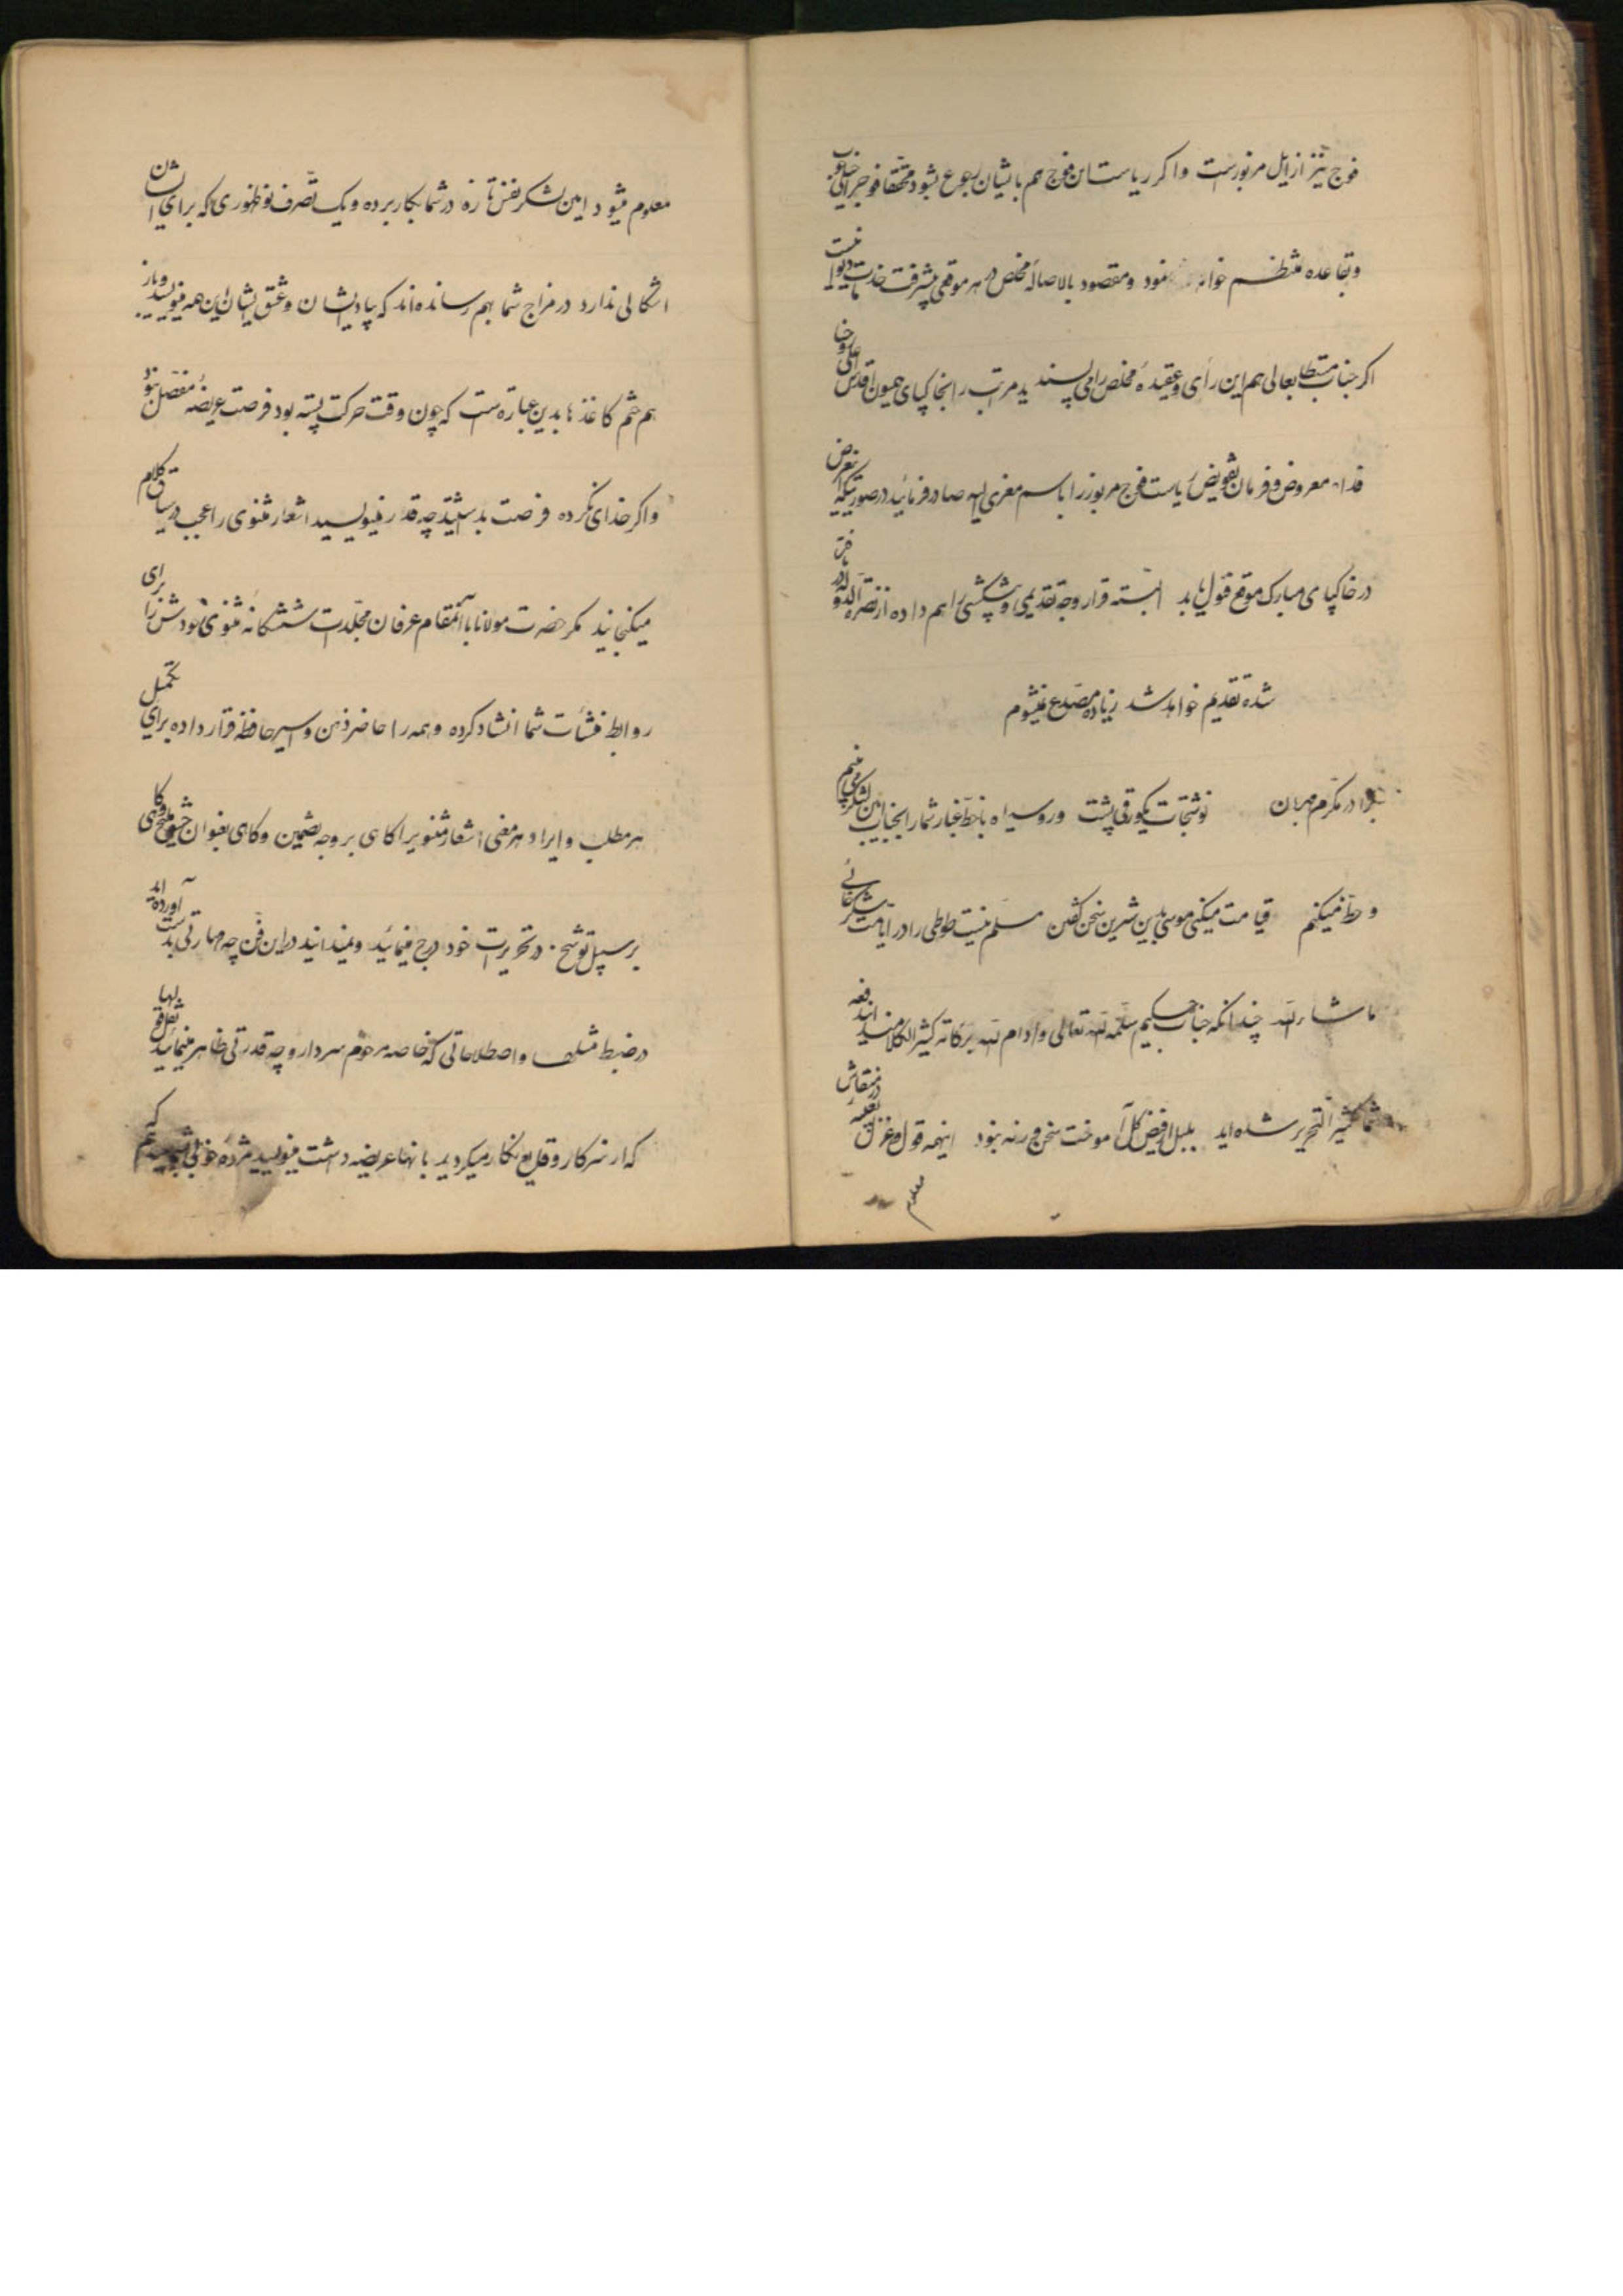 فوج نیز از ایل مزبور است و اگر ریاست این فوج هم بایشان رجوع بشود محققا فوج را بخوبی
و بقاعده منتظم خواهد نمود و مقصود بالاصاله مخلص در هر موقعی پیشرفت خدمت دیوانیست
اگر جناب مستطابعالی هم این رأی و عقیدهٔ مخلص را می پسندید مراتب را بخاکپای همیون اقدس اعلی روحنا
فداه معروض و فرمان تفویض ریاست فوج مزبور را باسم معزی الیه صادر فرمائید در صورتیکه این عرض
در خاکپای مبارک موقع قبول یابد البته قرار وجه تقدیمی و پیشکشی را هم داده از نصرة الدوله
شده تقدیم خواهد شد زیاده مصدع نمیشوم
برادر مکرم مهربان نوشتجات یکورقی پشت و رو سیاه با خط غبار شما را بجناب امین لشکر می بینم
و حظ میکنم قیامت میکنی موسی بدین شیرین سخن گفتن مسلم نیست طوطی را در ایامت شکرخائی
ماشاءالله چندانکه جناب حکیم سلمه الله تعالی و ادام الله برکاته کثیر الکلامند
شما کثیر التحریر شده اید بلبل از فیض گل آموخت سخن ورنه نبود اینهمه قول و غزل تعبیه در منقارش
معلوم
معلوم میشود امین لشکر نفس تازه در شما بکار برده و یک تصرف نوظهوری که برای ایشان
اشکالی ندارد در مزاج شما بهم رسانده اند که بیاد ایشان و عشق ایشان این همه مینویسید و باز
هم ختم کاغذها بدین عبارتست که چون وقت حرکت پسته بود فرصت عریضهٔ مفصل نبود
و اگر خدای نکرده فرصت بداشتید چه قدر مینویسید اشعار مثنوی را عجب در سیاق کلام
میگنجانید مگر حضرت مولانا با آنمقام عرفان مجلدات ششگانه مثنوی خودش را برای
روابط منشأت شما انشاد کرده و همه را حاضر ذهن و اسیر حافظه قرار داده برای تکمیل
هر مطلب و ایراد هر معنی اشعار مثنویرا گاهی بر وجه تضمین و گاهی بعنوان حشو ملیح و گاهی
بر سبیل توشیح در تحریرات خود درج مینمائید و نمیدانید در این فن چه مهارتی بدست آورده اند
در ضبط مثلها و اصطلاحاتی که خاصه مرحوم سردار و چه قدرتی ظاهر مینمائید
که از سرکار وقایع نگار میکردید با نهایت عریضه داشت مینویسید مژده خوبی